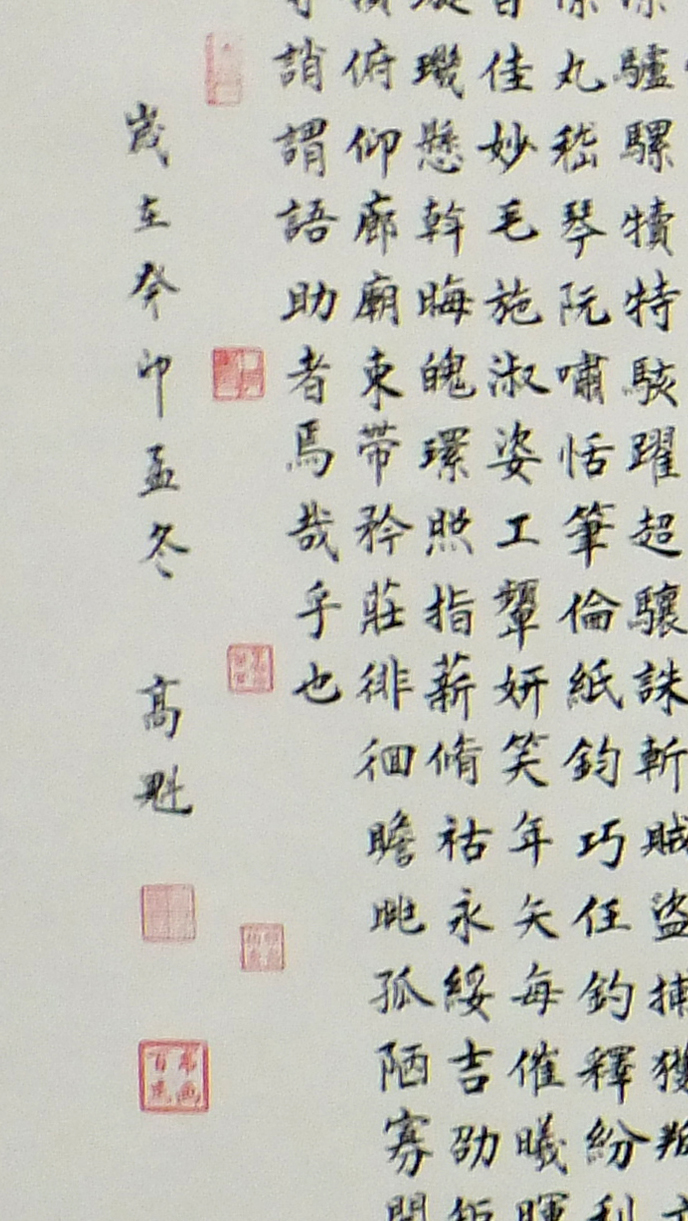 驢騾犢特駭躍超驤誅斬賊盜捕獲叛
丸嵇琴阮嘯恬筆倫紙鈞巧任釣釋紛利
皆佳妙毛施淑姿工顰妍笑年矢每催曦暉
璇璣懸斡晦魄環照指薪脩祜永綏吉劭矩
俯仰廊廟束帶矜莊徘徊瞻眺孤陋寡聞
誚謂語助者焉哉乎也
歲在癸卯孟冬 高魁